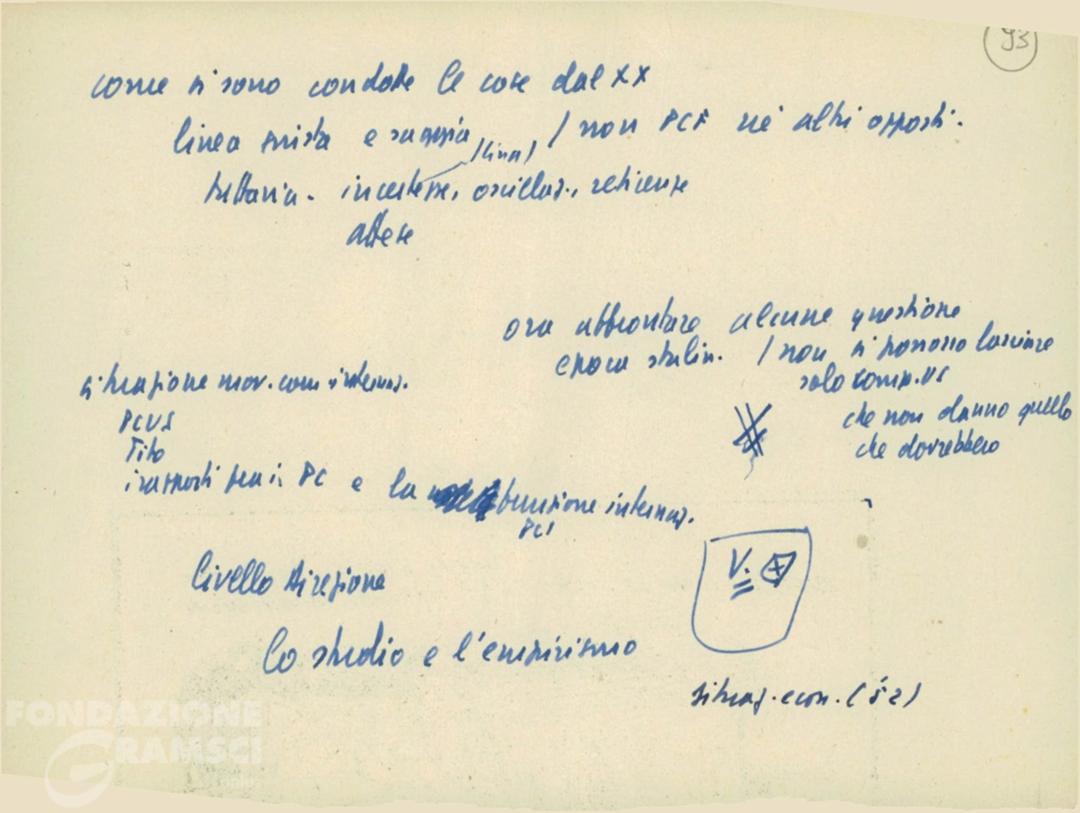 93
come si sono condotte le cose dal XX
linea giusta e saggia / non PCF né altri opposti.
(Cina)
tuttavia. incertezze, oscillaz., reticenze
attese
ora affrontare alcune questione
epoca stalin. / non si possono lasciare
solo comp. US
che non danno quello
che dovrebbero
situazione mov. com. internaz.
PCUS
Tito
i rapporti tra i PC e la funzione internaz.
PCI
Livello direzione
V.
lo studio e l'empirismo
situaz. econ.
FONDAZIONE
GRAMSCI